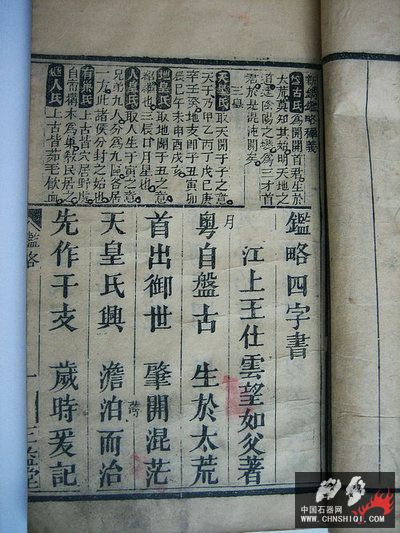 鑑略釋義
盤古氏 為開闢首君生於
太荒莫知其始明天地之
道達陰陽之變為三才首
君於是混沌開矣
三皇
天皇氏 取天開于子之意
天干乃甲乙丙丁戊己庚
辛壬癸地支即子丑寅卯
辰巳午未申酉戌亥
地皇氏 取地闢于丑之意
三辰日月星也
人皇氏 取人生于寅之意
兄弟九人分為九區各居
一方此諸侯分封之始也
有巢氏 上古皆穴居野處
木為巢教民居之
燧人氏 上古皆茹毛飲血
鑑略四字書
江上王仕雲望如父著
粵自盤古 生於太荒
首出御世 肇開混茫
天皇氏興 澹泊而治
先作干支 歲時爰記
鑑略 一 三益堂
中国石器网
WWW.CHNSHIQI.COM